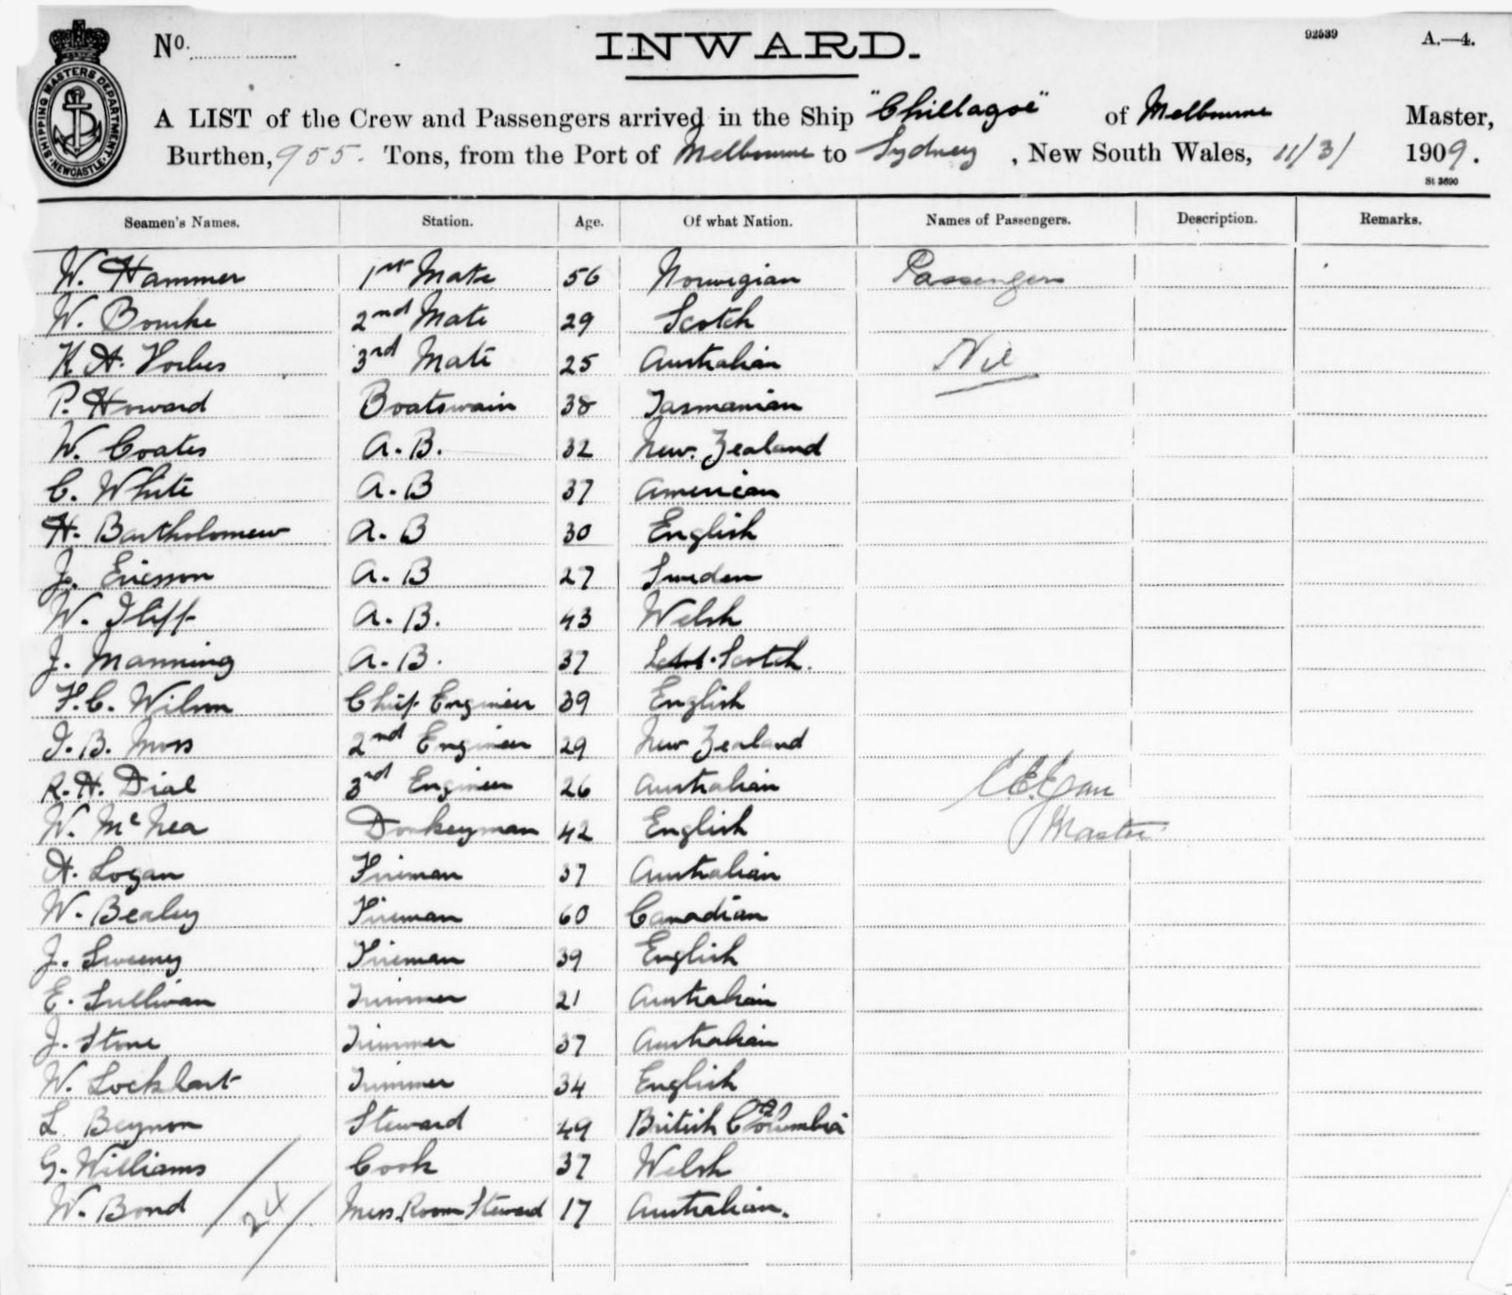 No. INWARD. 92539 A.—4.
SHIPPING MASTERS DEPARTMENT NEWCASTLE
A LIST of the Crew and Passengers arrived in the Ship "Chillagoe" of Melbourne Master,
Burthen, 955. Tons, from the Port of Melbourne to Sydney, New South Wales, 11/3/ 1909.
St 3690
Seamen's Names. Station. Age. Of what Nation. Names of Passengers. Description. Remarks.
W. Hammer 1st Mate 56 Norwegian Passengers
W. Bourke 2nd Mate 29 Scotch
K A. Forbes 3rd Mate 25 Australian Nil
P. Howard Boatswain 38 Tasmanian
W. Coates A.B. 32 New. Zealand
C. White A.B 37 American
H. Bartholomew A.B 30 English
J. Ericsson A.B 27 Sweden
W. Iliff A.B. 43 Welsh
J. Manning A.B. 37 Scotch.
F.C. Wilson Chief Engineer 39 English
I.B. Moss 2nd Engineer 29 New Zealand
R.H. Dial 3rd Engineer 26 Australian
W. McNea Donkeyman 42 English Master
H. Logan Fireman 37 Australian
W. Bealey Fireman 60 Canadian
J. Sweeney Fireman 39 English
E. Sullivan Trimmer 21 Australian
J. Stone Trimmer 37 Australian
W. Lockhart Trimmer 34 English
L Beynon Steward 49 British Columbia
G. Williams Cook 37 Welsh
W. Bond 24 Mess. Room Steward 17 Australian.